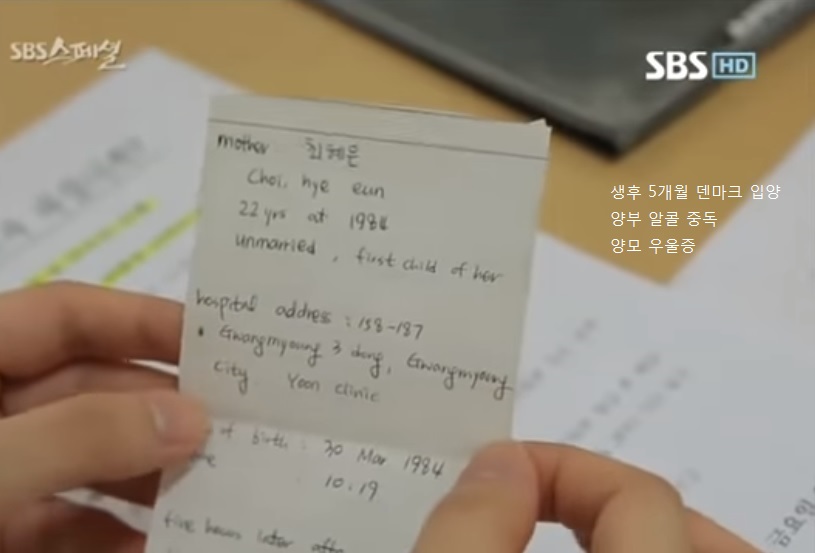 SBS 스페셜
SBS HD
생후 5개월 덴마크 입양
양부 알콜 중독
양모 우울증
mother 최혜은
Choi, hye eun
22 yrs at 1984
unmarried, first child of her
hospital address : 158-187
Gwangmyoung 3 dong, Gwangmyoung
city Yoon clinic
of birth : 30 Mar 1984
10:19
five hours later after
금요일